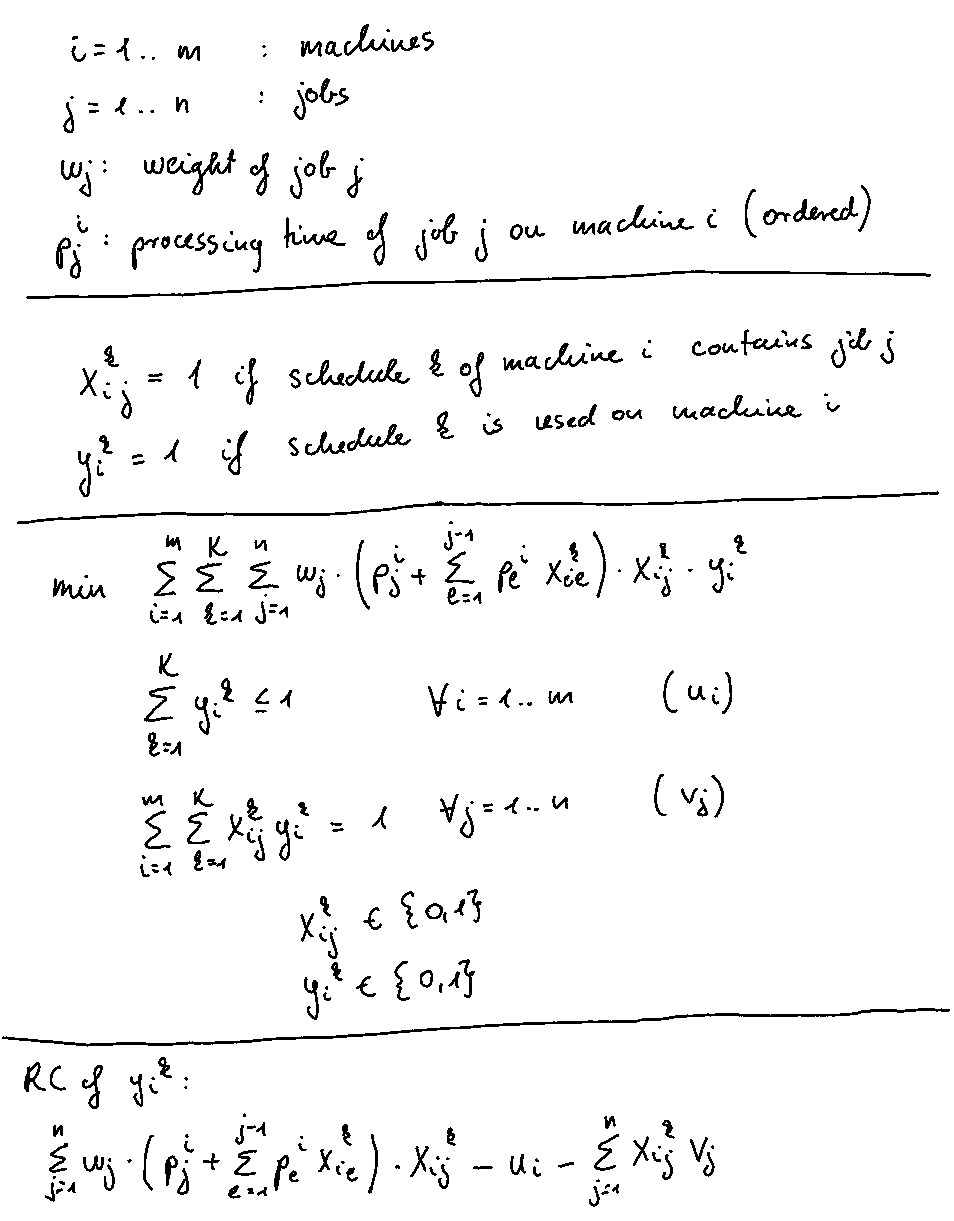 i = 1 .. m : machines
j = 1 .. n : jobs
w_j : weight of job j
p_j^i : processing time of job j on machine i (ordered)
x_{ij}^k = 1 if schedule k of machine i contains job j
y_i^k = 1 if schedule k is used on machine i
min \sum_{i=1}^{m} \sum_{k=1}^{K} \sum_{j=1}^{n} w_j · (p_j^i + \sum_{e=1}^{j-1} p_e^i x_{ie}^k) · x_{ij}^k · y_i^k
\sum_{k=1}^{K} y_i^k ≤ 1 ∀ i = 1 .. m (u_i)
\sum_{i=1}^{m} \sum_{k=1}^{K} x_{ij}^k y_i^k = 1 ∀ j = 1 .. n (v_j)
x_{ij}^k ∈ {0,1}
y_i^k ∈ {0,1}
RC of y_i^k :
\sum_{j=1}^{n} w_j · (p_j^i + \sum_{e=1}^{j-1} p_e^i x_{ie}^k) · x_{ij}^k - u_i - \sum_{j=1}^{n} x_{ij}^k v_j